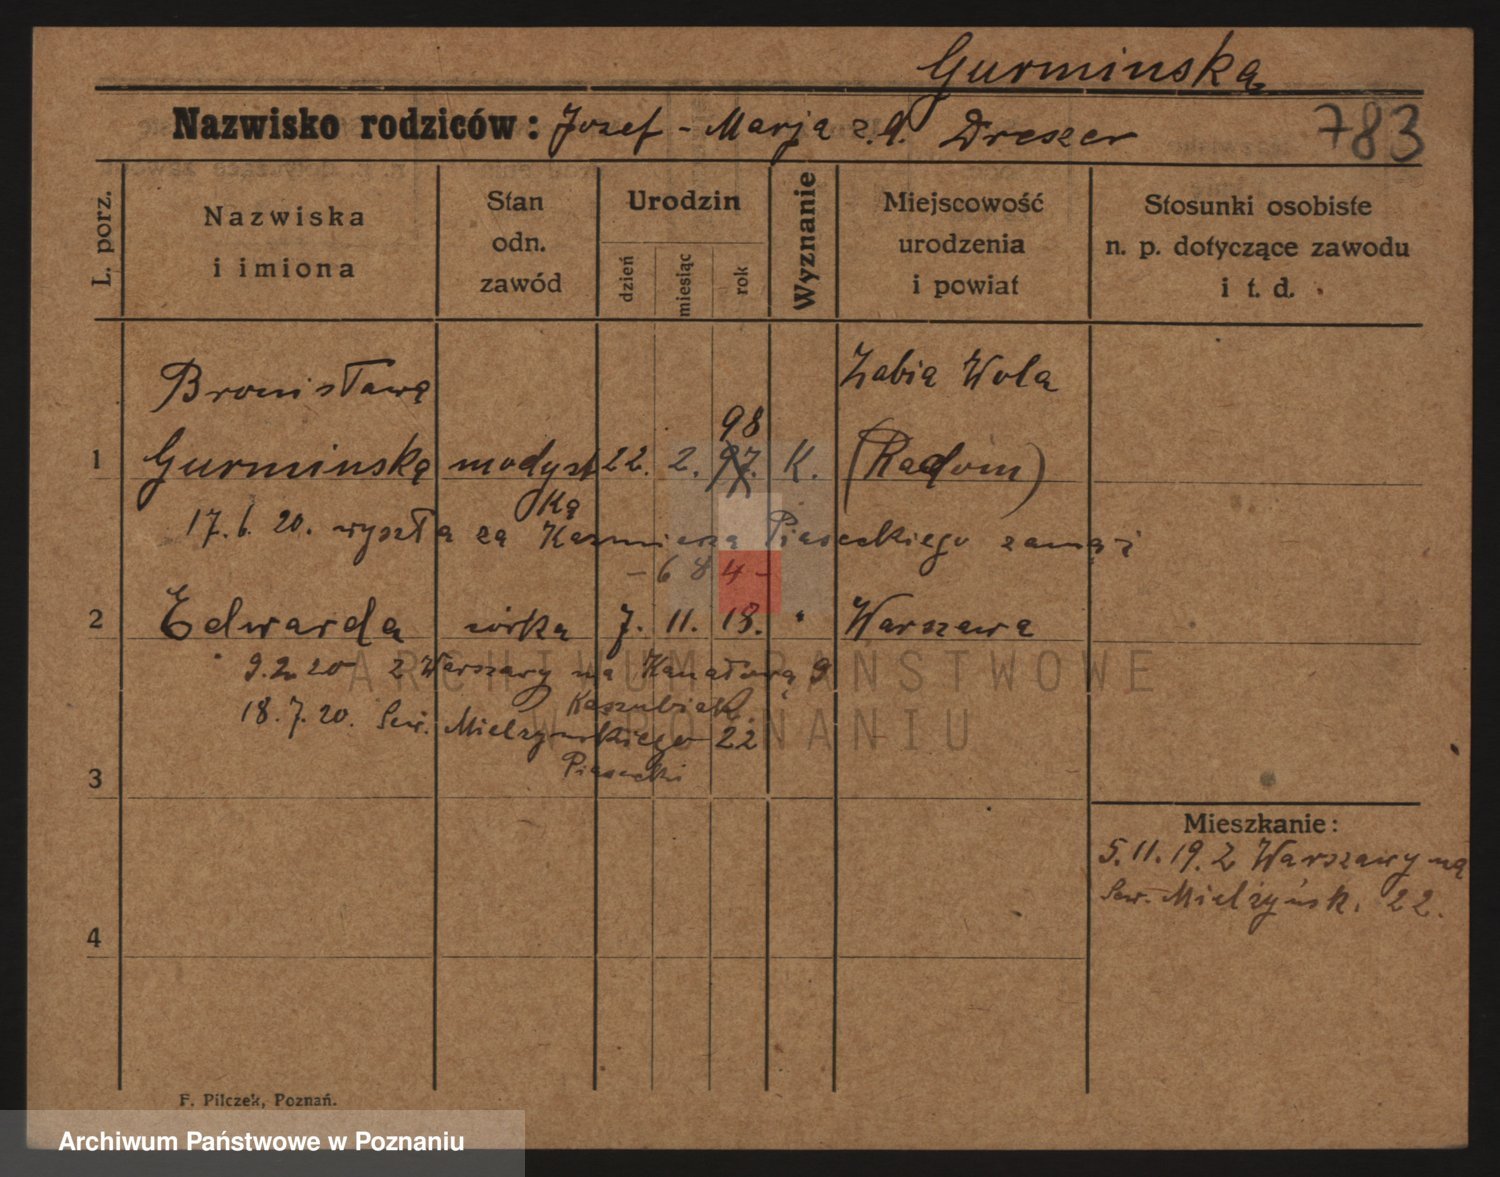 Gurminska
Nazwisko rodziców: Jozef - Marja z.d. Dreszer
783
L. porz.
Nazwiska
i imiona
Stan
odn.
zawód
Urodzin
dzień
miesiąc
rok
Wyznanie
Miejscowość
urodzenia
i powiat
Stosunki osobiste
n. p. dotyczące zawodu
i t. d.
Bronisława
Żabia Wola
98
1 Gurminska modyst 22. 2. 97. K. (Radom)
ka
17.6.20. wyszła za Kazmierza Piaseckiego zamąż
- 684 -
2 Edwarda córka 7. 11. 18. " Warszawa
9.2.20 z Warszawy na Kanałową 9
Kaszubiak
18.7.20. Sew. Mielzynskiego 22
Piasecki
3
4
Mieszkanie:
5.11.19. z Warszawy na
Sew. Mielżyńsk. 22.
F. Pilczek, Poznań.
ARCHIWUM PAŃSTWOWE
W POZNANIU
Archiwum Państwowe w Poznaniu